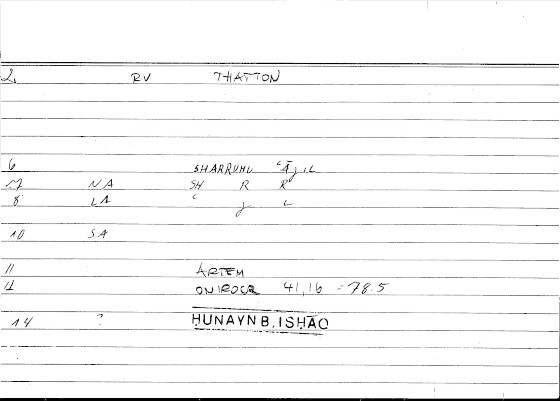 2. RV THATTON
6 SHARRUHU ʿĀǧIL
7 NA SH R R
8 LA ʿ ǧ L
10 SA
11 ARTEM
12 ONIROCR 41,16 = 78.5
14 ? ḤUNAYN B. ISḤĀQ